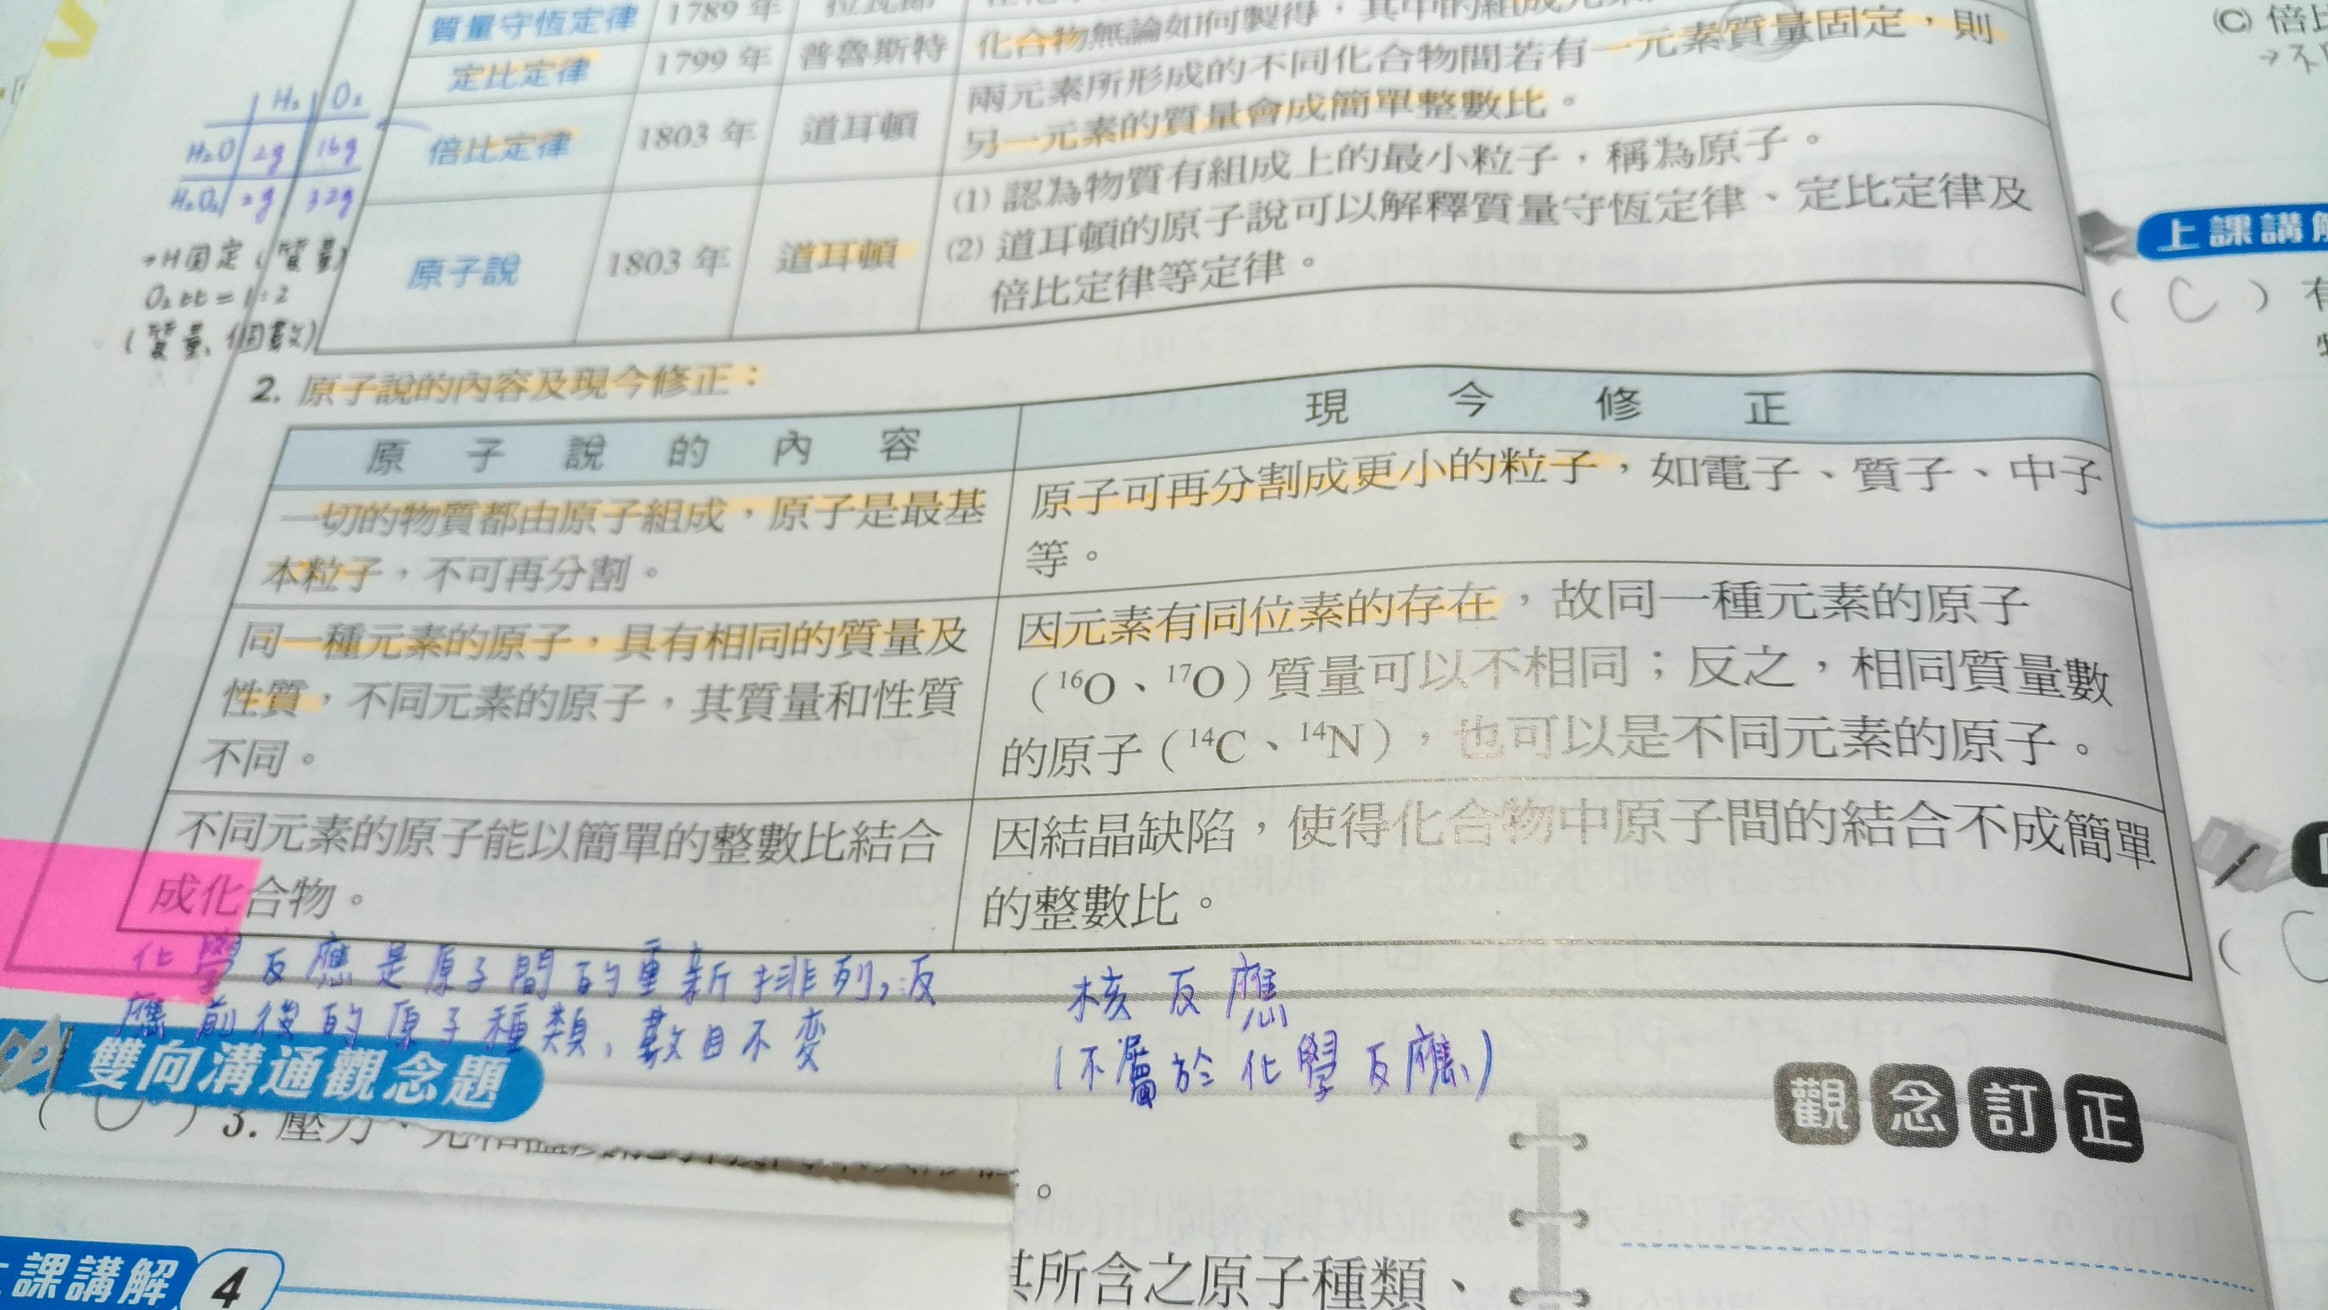 質量守恆定律 1789 年
定比定律 1799 年 普魯斯特 化合物無論如何製得，其中的組成元素
倍比定律 1803 年 道耳頓 兩元素所形成的不同化合物間若有一元素質量固定，則
另一元素的質量會成簡單整數比。
原子說 1803 年 道耳頓 (1) 認為物質有組成上的最小粒子，稱為原子。
(2) 道耳頓的原子說可以解釋質量守恆定律、定比定律及
倍比定律等定律。
H₂ O₂
H₂O 2g 16g
H₂O₂ 2g 32g
→H固定(質量)
O₂比=1:2
(質量、個數)
2. 原子說的內容及現今修正：
原子說的內容
現今修正
一切的物質都由原子組成，原子是最基
本粒子，不可再分割。
原子可再分割成更小的粒子，如電子、質子、中子
等。
同一種元素的原子，具有相同的質量及
性質，不同元素的原子，其質量和性質
不同。
因元素有同位素的存在，故同一種元素的原子
（¹⁶O、¹⁷O）質量可以不相同；反之，相同質量數
的原子（¹⁴C、¹⁴N），也可以是不同元素的原子。
不同元素的原子能以簡單的整數比結合
成化合物。
因結晶缺陷，使得化合物中原子間的結合不成簡單
的整數比。
化學反應是原子間的重新排列，反
應前後的原子種類、數目不變
核反應
(不屬於化學反應)
雙向溝通觀念題
3. 壓力、
觀念訂正
。
其所含之原子種類、
上課講解 4
(C) 倍比
→不
上課講解
( C ) 有